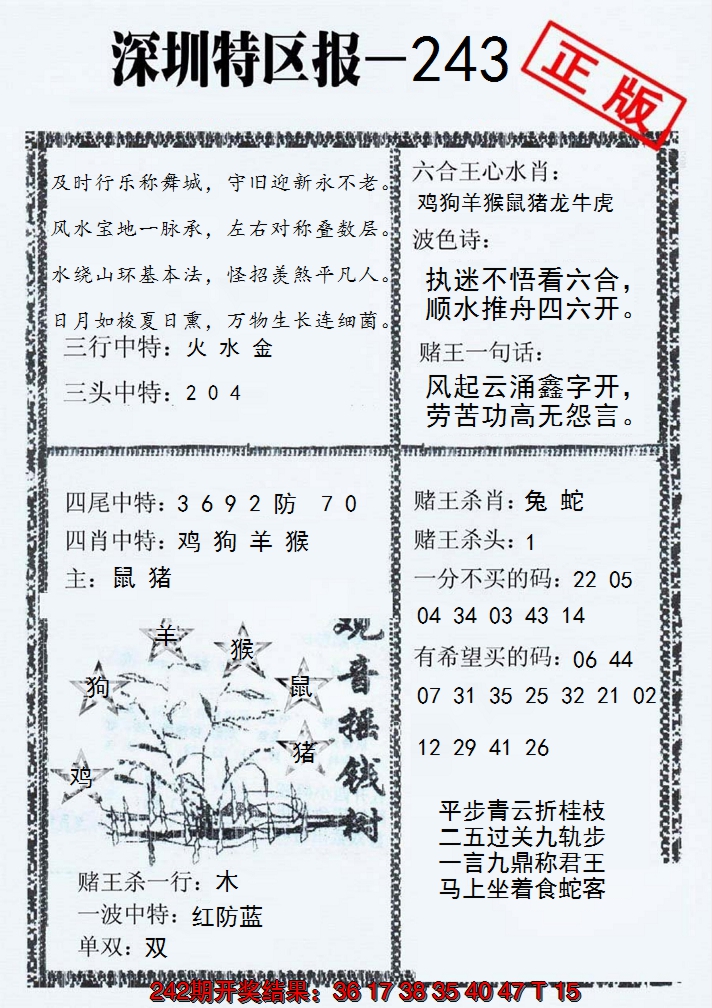 深圳特区报—243
正版
及时行乐称舞城，守旧迎新永不老。
风水宝地一脉承，左右对称叠数层。
水绕山环基本法，怪招羡煞平凡人。
日月如梭夏日熏，万物生长连细菌。
三行中特：火 水 金
三头中特：2 0 4
六合王心水肖：
鸡狗羊猴鼠猪龙牛虎
波色诗：
执迷不悟看六合，
顺水推舟四六开。
赌王一句话：
风起云涌鑫字开，
劳苦功高无怨言。
四尾中特：3 6 9 2 防 7 0
四肖中特：鸡 狗 羊 猴
主：鼠 猪
羊
猴
狗
鼠
猪
鸡
观音摇钱树
赌王杀一行：木
一波中特：红防蓝
单双：双
赌王杀肖：兔 蛇
赌王杀头：1
一分不买的码：22 05
04 34 03 43 14
有希望买的码：06 44
07 31 35 25 32 21 02
12 29 41 26
平步青云折桂枝
二五过关九轨步
一言九鼎称君王
马上坐着食蛇客
242期开奖结果：36 17 38 35 40 47 T 15